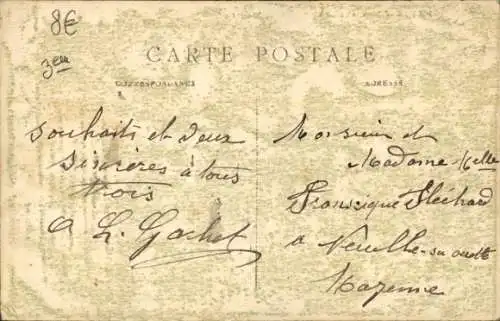 8€
3em
CARTE POSTALE
CORRESPONDANCE
ADRESSE
Souhaits et
sincères à tous
trois
L. Gachet
Monsieur et
Madame Melle
Fréchard
à Neuilh
Mayenne